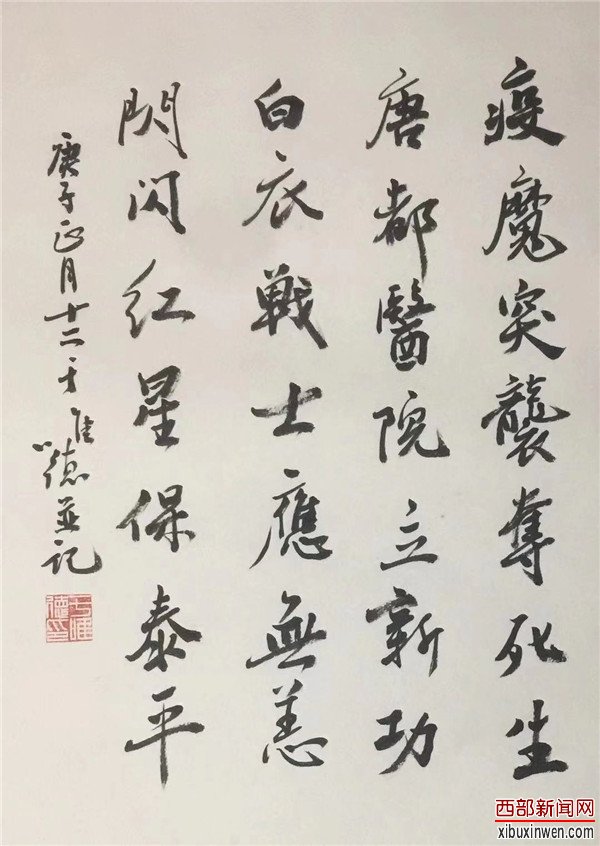 疫魔突襲奪死生
唐都醫院立新功
白衣戰士應無恙
閃闪红星保泰平
庚子正月十二 惟德並记
西部新闻网
xibuxinwen.com